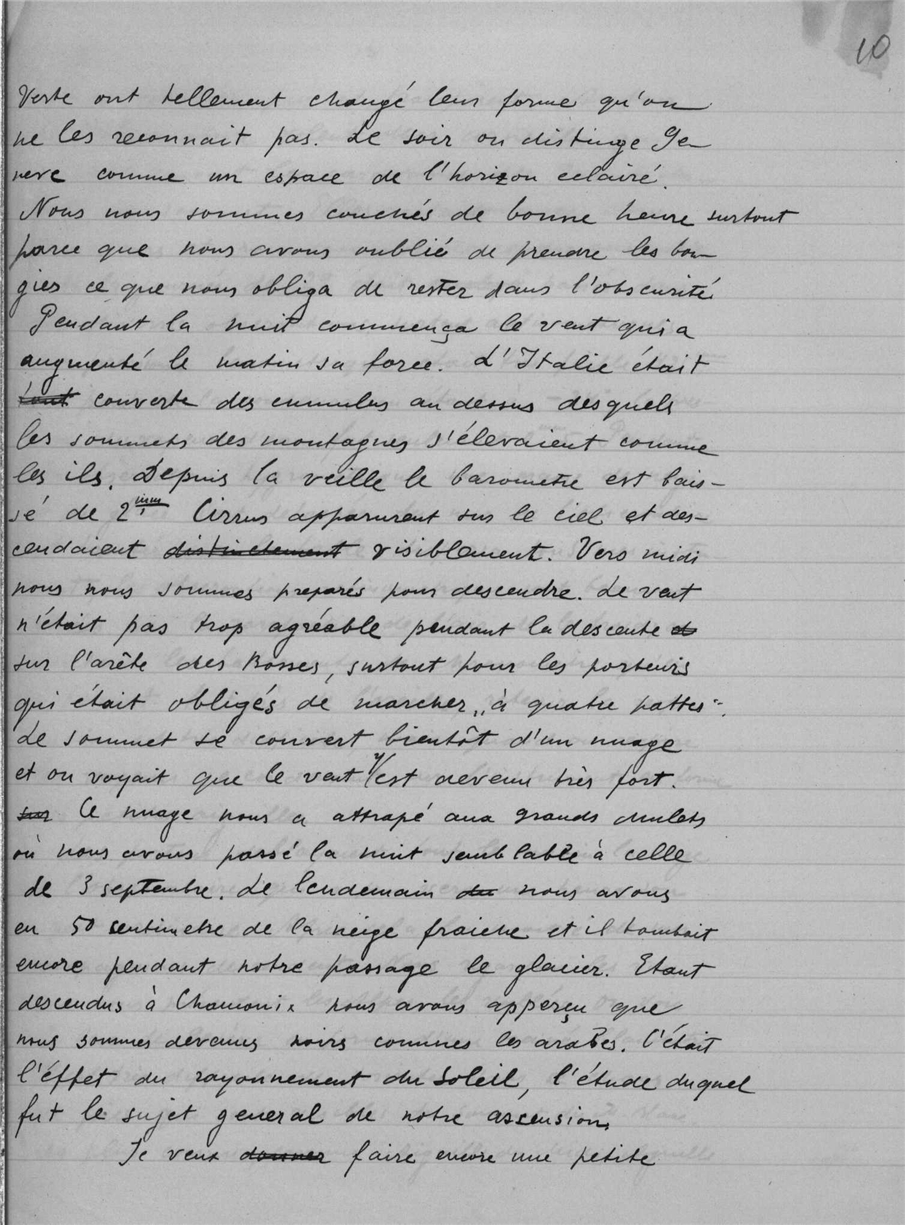 10
Verte ont tellement changé leur forme qu'on
ne les reconnait pas. Le soir on distinge Ge-
neve comme un espace de l'horizon eclairé.
Nous nous sommes couchés de bonne heure surtout
parce que nous avons oublié de prendre les bou-
gies ce que nous obliga de rester dans l'obscurité
Pendant la nuit commença le vent qui a
augmenté le matin sa force. L'Italie était
couverte des cumulus au dessus desquels
les sommets des montagnes s'élevaient comme
les ils. Depuis la veille le barometre est bais-
sé de 2mm Cirrus apparurent sur le ciel et des-
cendaient distinctement visiblement. Vers midi
nous nous sommes preparés pour descendre. Le vent
n'était pas trop agréable pendant la descente de
sur l'arête des Bosses, surtout pour les porteurs
qui était obligés de marcher „à quatre pattes“.
Le sommet se couvert bientôt d'un nuage
et on voyait que le vent y est devenu très fort.
sur Ce nuage nous a attrapé aux grands Mulets
où nous avons passé la nuit semblable à celle
de 3 septembre. Le lendemain du nous avons
eu 50 sentimetre de la neige fraiche et il tombait
encore pendant notre passage le glacier. Etant
descendus à Chamonix nous avons apperçu que
nous sommes devenus noirs commes les arabes. C'était
l'éffet du rayonnement du Soleil, l'étude duquel
fut le sujet general de notre ascension.
Je veux donner faire encore une petite